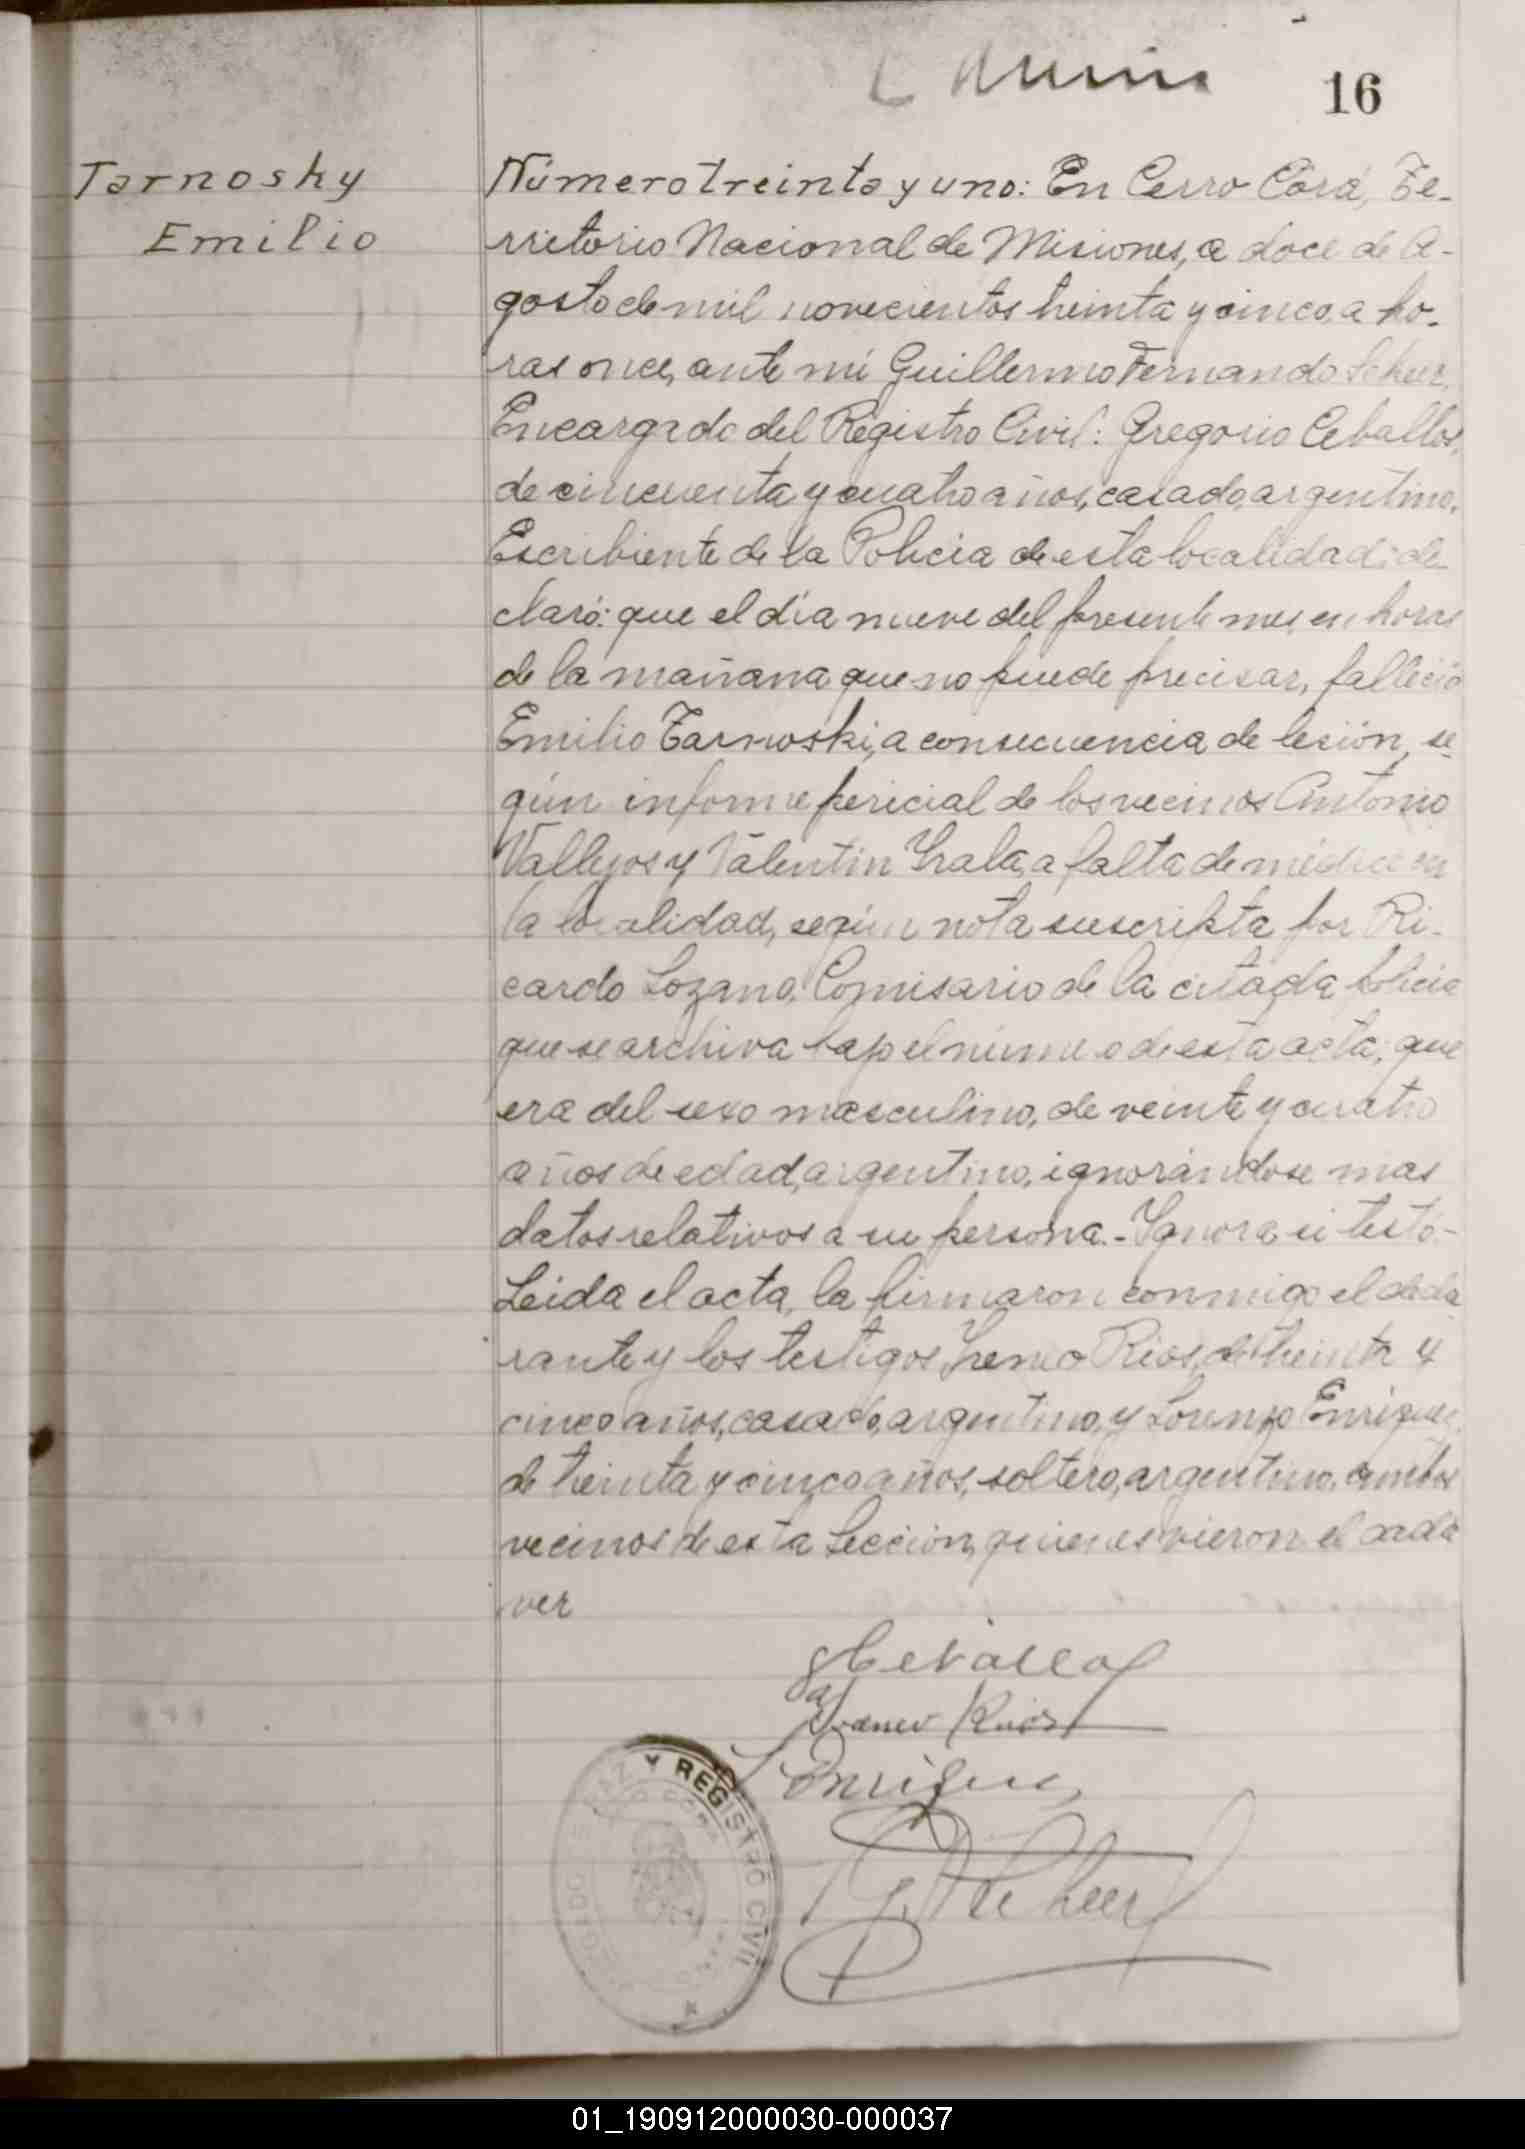 16
Tarnoshy
Emilio
Número treinta y uno: En Cerro Corá, Te-
rritorio Nacional de Misiones, a doce de A-
gosto de mil novecientos treinta y cinco, a ho-
ras once, ante mi Guillermo Fernando Scheer,
Encargado del Registro Civil: Gregorio Ceballos,
de cincuenta y cuatro años, casado, argentino,
Escribiente de la Policia de esta localidad: de
claró: que el día nueve del presente mes, en horas
de la mañana que no puede precisar, falleció
Emilio Tarnoski, a consecuencia de lesión, se-
gún informe pericial de los vecinos Antonio
Vallejos y Valentin Irala, a falta de médico en
la localidad, según nota suscripta por Ri-
cardo Lozano, Comisario de la citada policia
que se archiva bajo el número de esta acta; que
era del sexo masculino, de veinte y cuatro
años de edad, argentino, ignorándose mas
datos relativos a su persona.- Ignora si testó.-
Leida el acta, la firmaron conmigo el decla
rante y los testigos, Ireneo Rios, de treinta y
cinco años, casado, argentino, y Lorenzo Enriquez,
de treinta y cinco años, soltero, argentino, ambos
vecinos de esta Sección, quienes vieron el cadá
ver
GCeballos
Ireneo Rios
L Enriquez
G. F. Scheer
JUZGADO DE PAZ Y REGISTRO CIVIL
CERRO CORA
01_190912000030-000037